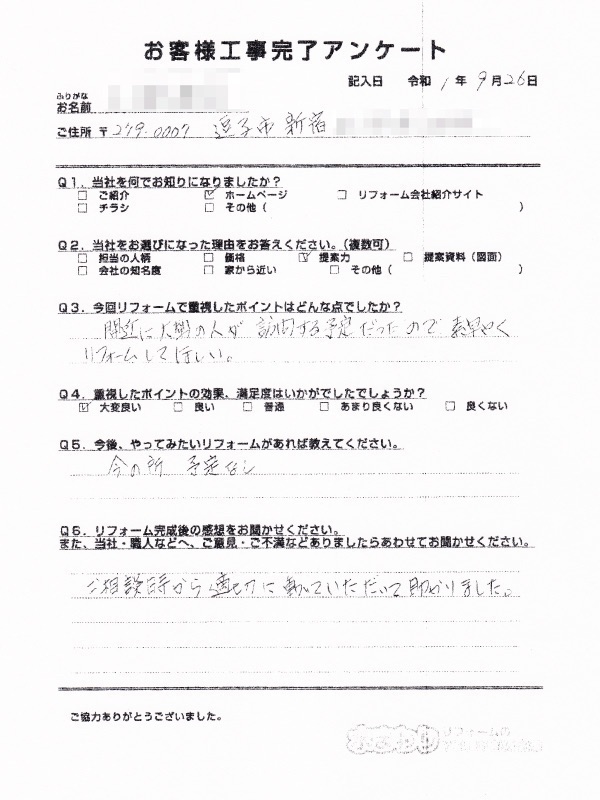 お客様工事完了アンケート
記入日 令和 1 年 9 月 26 日
ふりがな
お名前
ご住所 〒 249-0007 逗子市 新宿
Q1. 当社を何でお知りになりましたか?
□ ご紹介 ☑ ホームページ □ リフォーム会社紹介サイト
□ チラシ □ その他 ( )
Q2. 当社をお選びになった理由をお答えください。(複数可)
□ 担当の人柄 □ 価格 ☑ 提案力 □ 提案資料(図面)
□ 会社の知名度 □ 家から近い □ その他 ( )
Q3. 今回リフォームで重視したポイントはどんな点でしたか?
間近に大勢の人が訪問する予定だったので 素早く
リフォームしてほしい。
Q4. 重視したポイントの効果、満足度はいかがでしたでしょうか?
☑ 大変良い □ 良い □ 普通 □ あまり良くない □ 良くない
Q5. 今後、やってみたいリフォームがあれば教えてください。
今の所 予定なし
Q6. リフォーム完成後の感想をお聞かせください。
また、当社・職人などへ、ご意見・ご不満などありましたらあわせてお聞かせください。
ご相談時から適切に動いていただいて助かりました。
ご協力ありがとうございました。
リフォームの